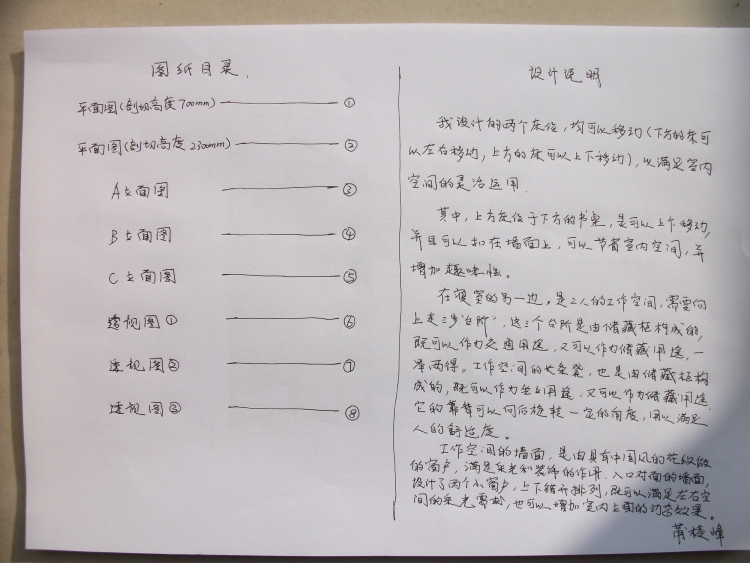 图纸目录.
平面图(剖切高度700mm) ①
平面图(剖切高度2300mm) ②
A立面图 ③
B立面图 ④
C立面图 ⑤
透视图① ⑥
透视图② ⑦
透视图③ ⑧
设计说明
我设计的两个床位,均可以移动(下方的床可
以左右移动,上方的床可以上下移动),以满足室内
空间的灵活运用.
其中,上方床位于下方的书桌,是可以上下移动,
并且可以扣在墙面上,可以节省室内空间,并
增加趣味性。
在寝室的另一边,是二人的工作空间,需要向
上走三步“台阶”,这三个台阶是由储藏柜构成的,
既可以作为交通用途,又可以作为储藏用途,一
举两得。工作空间的长条凳,也是由储藏柜构
成的,既可以作为坐的用途,又可以作为储藏用途.
它的靠背可以向后旋转一定的角度,用以满足
人的舒适度。
工作空间的墙面,是由具有中国风的花纹做
的窗户,满足采光和装饰的作用.入口对面的墙面,
设计了两个小窗户,上下错开排列,既可以满足左右空
间的采光需要,也可以增加室内立面的动态效果。